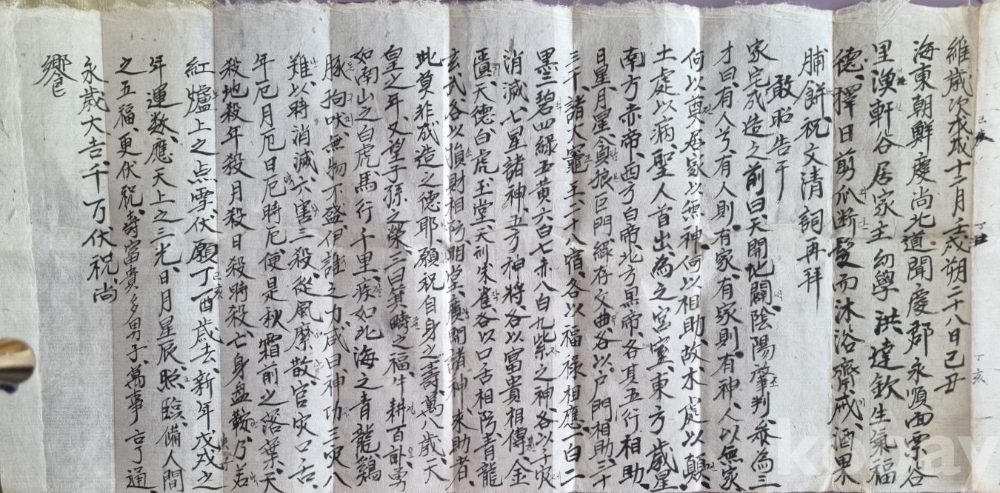 維歲次戊戌十二月壬戌朔二十八日己丑
海東朝鮮慶尚北道聞慶郡永順面栗谷
里漁軒谷居家主幼學洪達欽生氣福
德擇日剪爪斷髮而沐浴齋戒酒果
脯餅祝文清詞再拜
敢昭告于
家宅成造之前曰天開地闢陰陽肇判參為三
才曰有人兮有人則有家有家則有神人以無家
何以奠居家以無神何以相助故木處以顛
土處以病聖人首出為之宮室東方歲星
南方赤帝西方白帝北方黑帝各其五行相助
日星月星貪狼巨門綠存文曲各以戶門相助三十
三千諸大竈王二十八宿各以福祿相應一白二
墨三碧四綠五黃六白七赤八白九紫之神各以子灾
消滅七星諸神五方神將各以富貴相傳金
匱天德白虎玉堂天刑朱雀各以口舌相防青龍
玄武各以損財相防明堂廣開諸神來助者
此莫非成造之德耶願祝自身之壽萬八歲天
皇之年又望子孫之榮三曰箕疇之福牛耕百畝勇
如南山之白虎馬行千里疾如北海之青龍鷄
豚狗吠無物不盛伊誰之力咸曰神功三灾八
難以時消滅六害三殺從風摩散官灾口舌
年厄月厄日厄時厄便是秋霜前之落葉天
殺地殺年殺月殺日殺時殺亡身盘鞍方若
紅爐上之点雪伏願丁酉歲去新年戊戌之
年運数應天上之三光日月星辰照臨備人間
之五福更伏祝壽富貴多男子萬事亨通
永歲大吉千万伏祝尚
饗
kobay